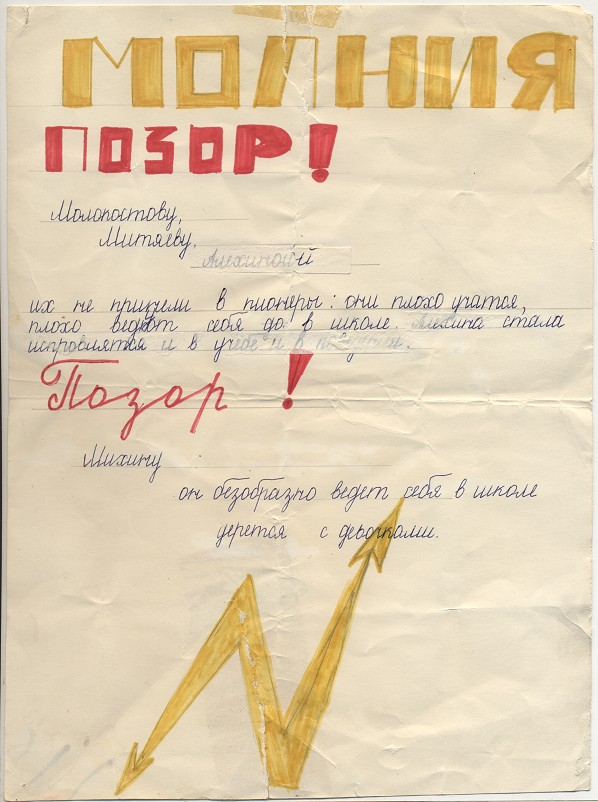 МОЛНИЯ
ПОЗОР!
Молокостову,
Митяеву,
Алехиной
их не приняли в пионеры: они плохо учатся,
плохо ведут себя в школе. Алехина стала
исправлятся и в учебе и в
Позор!
Михину
он безобразно ведет себя в школе
дерется с девочками.